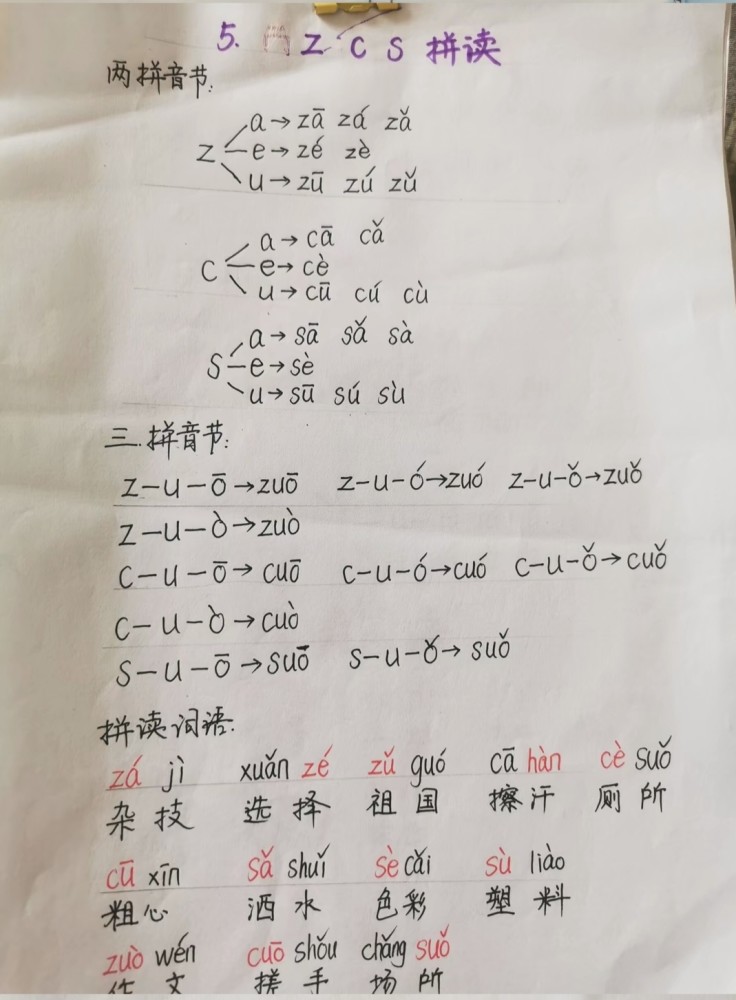 5. z c s 拼读
两拼音节:
a→zā zá zǎ
z e→zé zè
u→zū zú zǔ
a→cā cǎ
c e→cè
u→cū cú cù
a→sā sǎ sà
s e→sè
u→sū sú sù
三拼音节:
z-u-ō→zuō z-u-ó→zuó z-u-ǒ→zuǒ
z-u-ò→zuò
c-u-ō→cuō c-u-ó→cuó c-u-ǒ→cuǒ
c-u-ò→cuò
s-u-ō→suō s-u-ǒ→suǒ
拼读词语:
zá jì xuǎn zé zǔ guó cā hàn cè suǒ
杂技 选择 祖国 擦汗 厕所
cū xīn sǎ shuǐ sè cǎi sù liào
粗心 洒水 色彩 塑料
zuò wén cuō shǒu chǎng suǒ
作文 搓手 场所